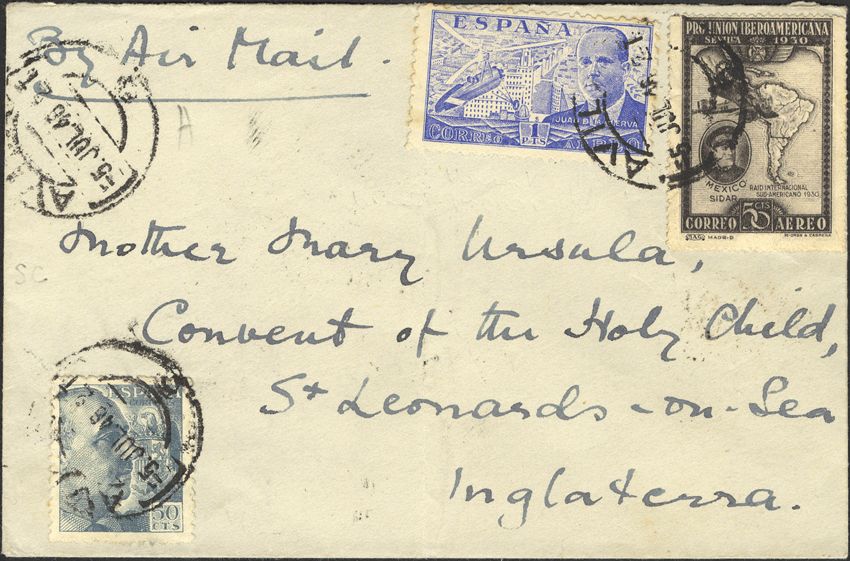 By Air Mail.
ESPAÑA
JUAN DE LA CIERVA
1
PTS
CORREO AEREO
PRO UNION IBEROAMERICANA
SEVILLA 1930
MEXICO
SIDAR
RAID INTERNACIONAL
SUD-AMERICANO 1930
50 CTS
CORREO AEREO
MADRID
15 JUL 46
15 JUL 46
A
SC
Mother Mary Ursula,
Convent of the Holy Child,
St Leonards-on-Sea
Inglaterra.
15 JUL 46
50
CTS